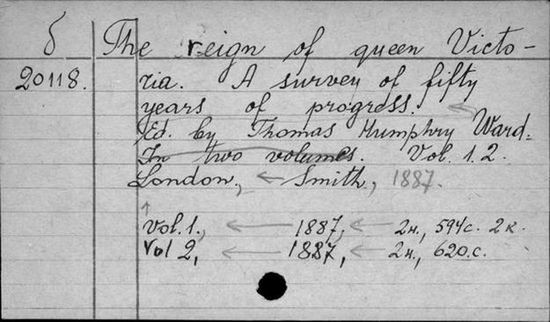 б The reign of queen Victo-
20118. ria. A survey of fifty
years of progress.
Ed. by Thomas Humphry Ward.
In two volumes. Vol. 1. 2.
London, ← Smith, 1887.
Vol. 1., ← 1887, ← 2н., 594с. 2к.
Vol 2, ← 1887, ← 2н., 620.с.